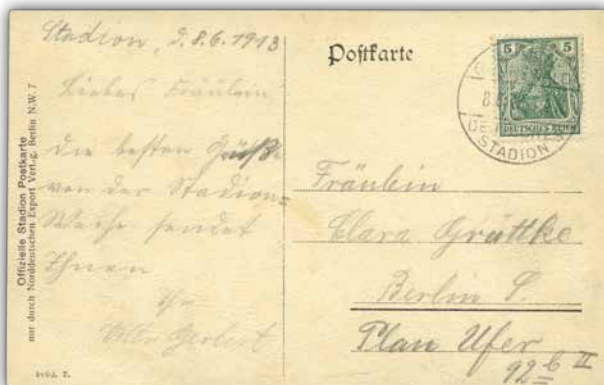 Stadion, d. 8.6.1913
Liebes Fräulein!
Die besten Grüße
von der Stadion=
Weihe sendet
Ihnen
Ihr
Herbert
Offizielle Stadion Postkarte
nur durch Norddeutschen Export Verl.-g. Berlin N.W. 7
Postkarte
5 5
DEUTSCHES REICH
STADION
Fräulein
Clara Grüttke
Berlin S.
Plan Ufer
92 b II